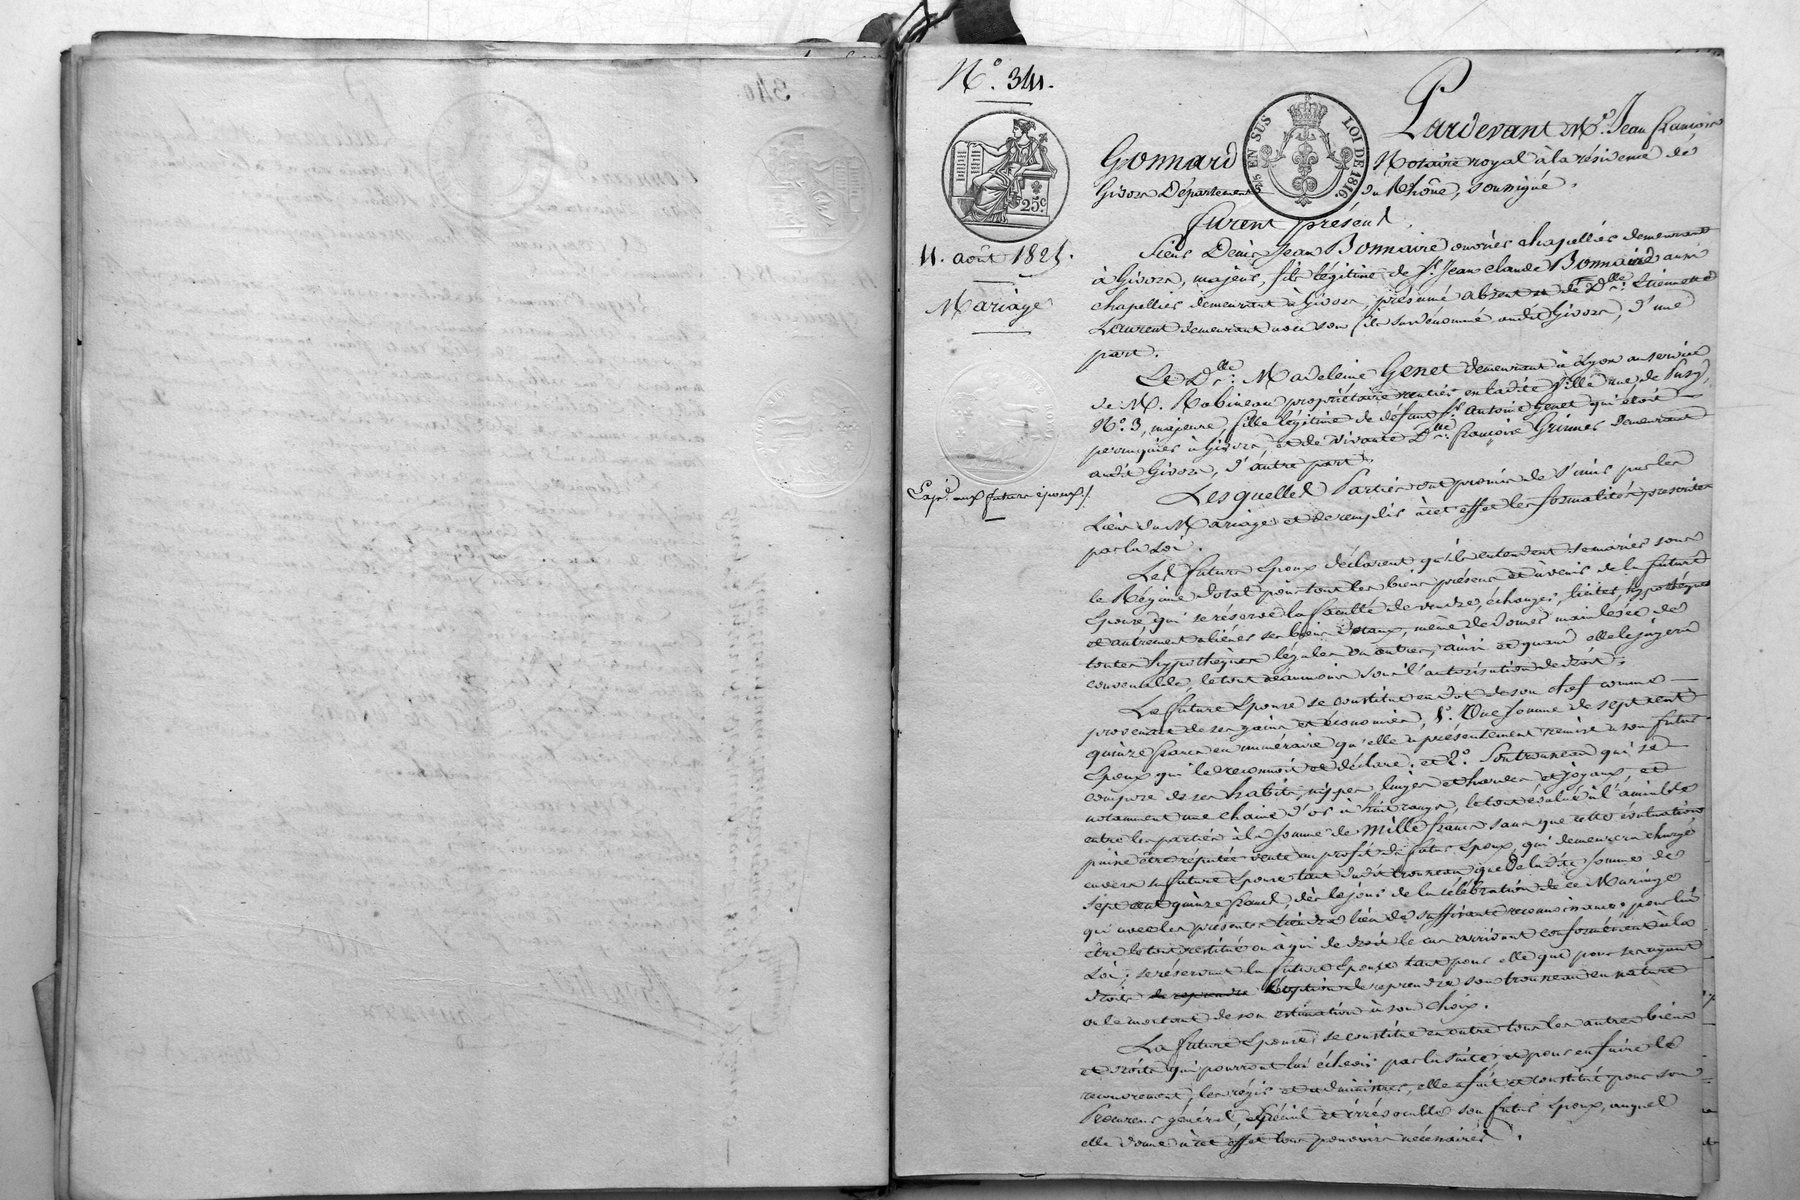 N.° 341.
Pardevant M.e Jean François
Gonnard Notaire royal à la résidence de
Givors Département du Rhône, soussigné.
EN SUS
LOI DE 1816.
25.c
11. août 1825.
Mariage
Furent présent
Sieur Denis Jean Bonnaire ouvrier chapellier demeurant
à Givors, majeur, fils légitime de S.r Jean Claude Bonnaire aussi
chapellier demeurant à Givors, présumé absent et de D.lle Etiennette
Laurent demeurant avec son fils surdénommé audit Givors, d'une
part.
Et D.lle Madeleine Genet demeurant à Lyon au service
de M. Robineau propriétaire rentier en ladite Ville rue de Puzy,
N.° 3, majeure, fille légitime de défunt S.r Antoine Genet qui était
perruquier à Givors, et de vivante D.lle Françoise Grimer demeurant
audit Givors, d'autre part.
Expé. aux futurs époux /.
Lesquelles Parties ont promis de s'unir par les
Liens du Mariage et de remplir à cet effet les formalités prescrites
par la Loi.
Les futurs Epoux déclarent qu'ils entendent se marier sous
le Régime dotal pour tous les biens présens et à venir de la future
Epouse, qui se réserve la faculté de vendre, échanger, liciter, hypothéquer
et autrement aliéner ses biens dotaux, même de donner mainlevée de
toutes hypothèques légales ou autres, ainsi et quand elle le jugera
convenable, le tout néanmoins sous l'autorisation de droit.
La future Epouse se constitue en dot de son chef comme
provenant de ses gains et économies, 1.° Une somme de sept cent
quinze francs en numéraire qu'elle a présentement remise à son futur
Epoux qui le reconnoit et déclare; et 2.° Son trousseau qui se
compose de ses habits, nippes, linges et hardes et joyaux, et
notamment une chaine d'or à huit rangs, le tout évalué à l'amiable
entre les parties à la somme de mille francs sans que cette évaluation
puisse être réputée vente au profit du futur Epoux, qui demeurera chargé
envers sa future Epouse tant dudit trousseau que de ladite somme de
sept cent quinze francs, dès le jour de la célébration de ce Mariage
qui avec les présentes tiendra lieu de suffisante reconnoissance, pour lui
être le tout restitué ou à qui de droit le cas arrivant conformément à la
Loi; se réservant la future Epouse tant pour elle que pour ses ayant
droits de reprendre l'option de reprendre son trousseau en nature
ou le montant de son estimation à son choix.
La future Epouse se constitue en outre tous les autres biens
et droits qui pourront lui échoir par la suite; et pour en faire le
recouvrement, les régir et administrer, elle a fait et constitué pour son
Procureur général, spécial et irrévocable son futur Epoux, auquel
elle donne à cet effet tous pouvoirs nécessaires.